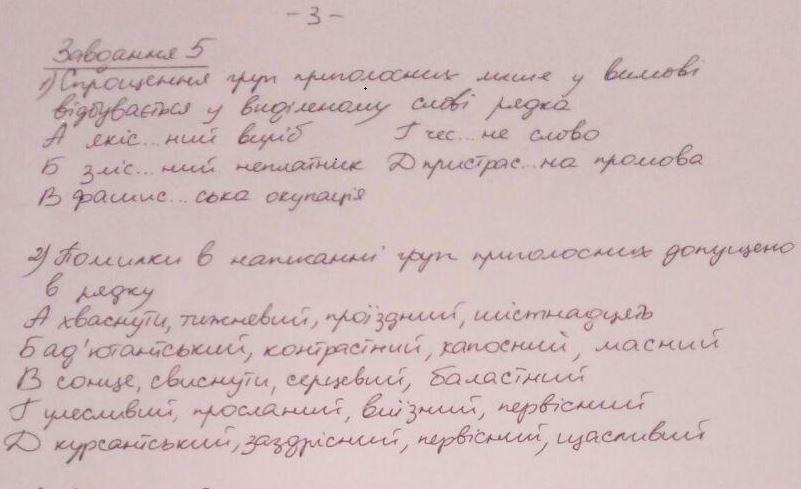 -3-
Завдання 5
1) Спрощення груп приголосних лише у вимові
відбувається у виділеному слові рядка
А якіс...ний виріб Г чес...не слово
Б зліс...ний неплатник Д пристрас...на промова
В фашис...ська окупація
2) Помилки в написанні груп приголосних допущено
в рядку
А хваснути, тижневий, проїздний, шістнадцять
Б ад'ютантський, контрастний, капосний, масний
В сонце, свиснути, серцевий, баластний
Г улесливий, просланий, виїзний, первісний
Д курсантський, заздрісний, первісний, щасливий